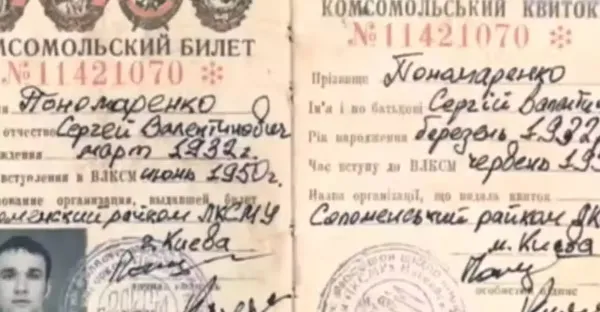 ОМСОМОЛЬСКИЙ БИЛЕТ
№ 11421070 *
Пономаренко
отчество Сергей Валентинович
дения март 1932 г.
вступления в ВЛКСМ июнь 1950г.
ование организации, выдавшей билет
оменский райком ЛКСМУ
г. Киева
КОМСОМОЛЬСЬКИЙ КВИТОК
№ 11421070 *
Прізвище Пономаренко
Ім'я і по батькові Сергій Валенти
Рік народження березень 1932
Час вступу до ВЛКСМ червень 19
Назва організації, що видала квиток
Соломенський райком ЛК
м. Києва
особистий підпис